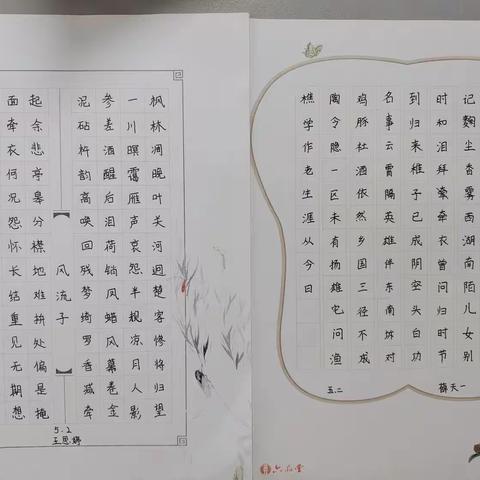 枫林凋晚叶关河迥楚客惨将归望
一川暝霭雁声哀怨半规凉月人影
参差酒醒后泪荷销凤蜡风幕卷金
泥砧杵韵高唤回残梦绮罗香减牵
风流子
起余悲亭皋分襟地难拚处偏是掩
面牵衣何况怨怀长结重见无期想
5.2
王思婷
记麴尘香雾西湖南陌儿女别
时和泪拜牵牵衣曾问归时节
到归来稚子已成阴空头白功
名事云霄隔英雄伴东南坼对
鸡豚社酒依然乡国三径不成
陶令隐一区未有扬雄宅问渔
樵学作老生涯从今日
五.二
薛天一
六品堂